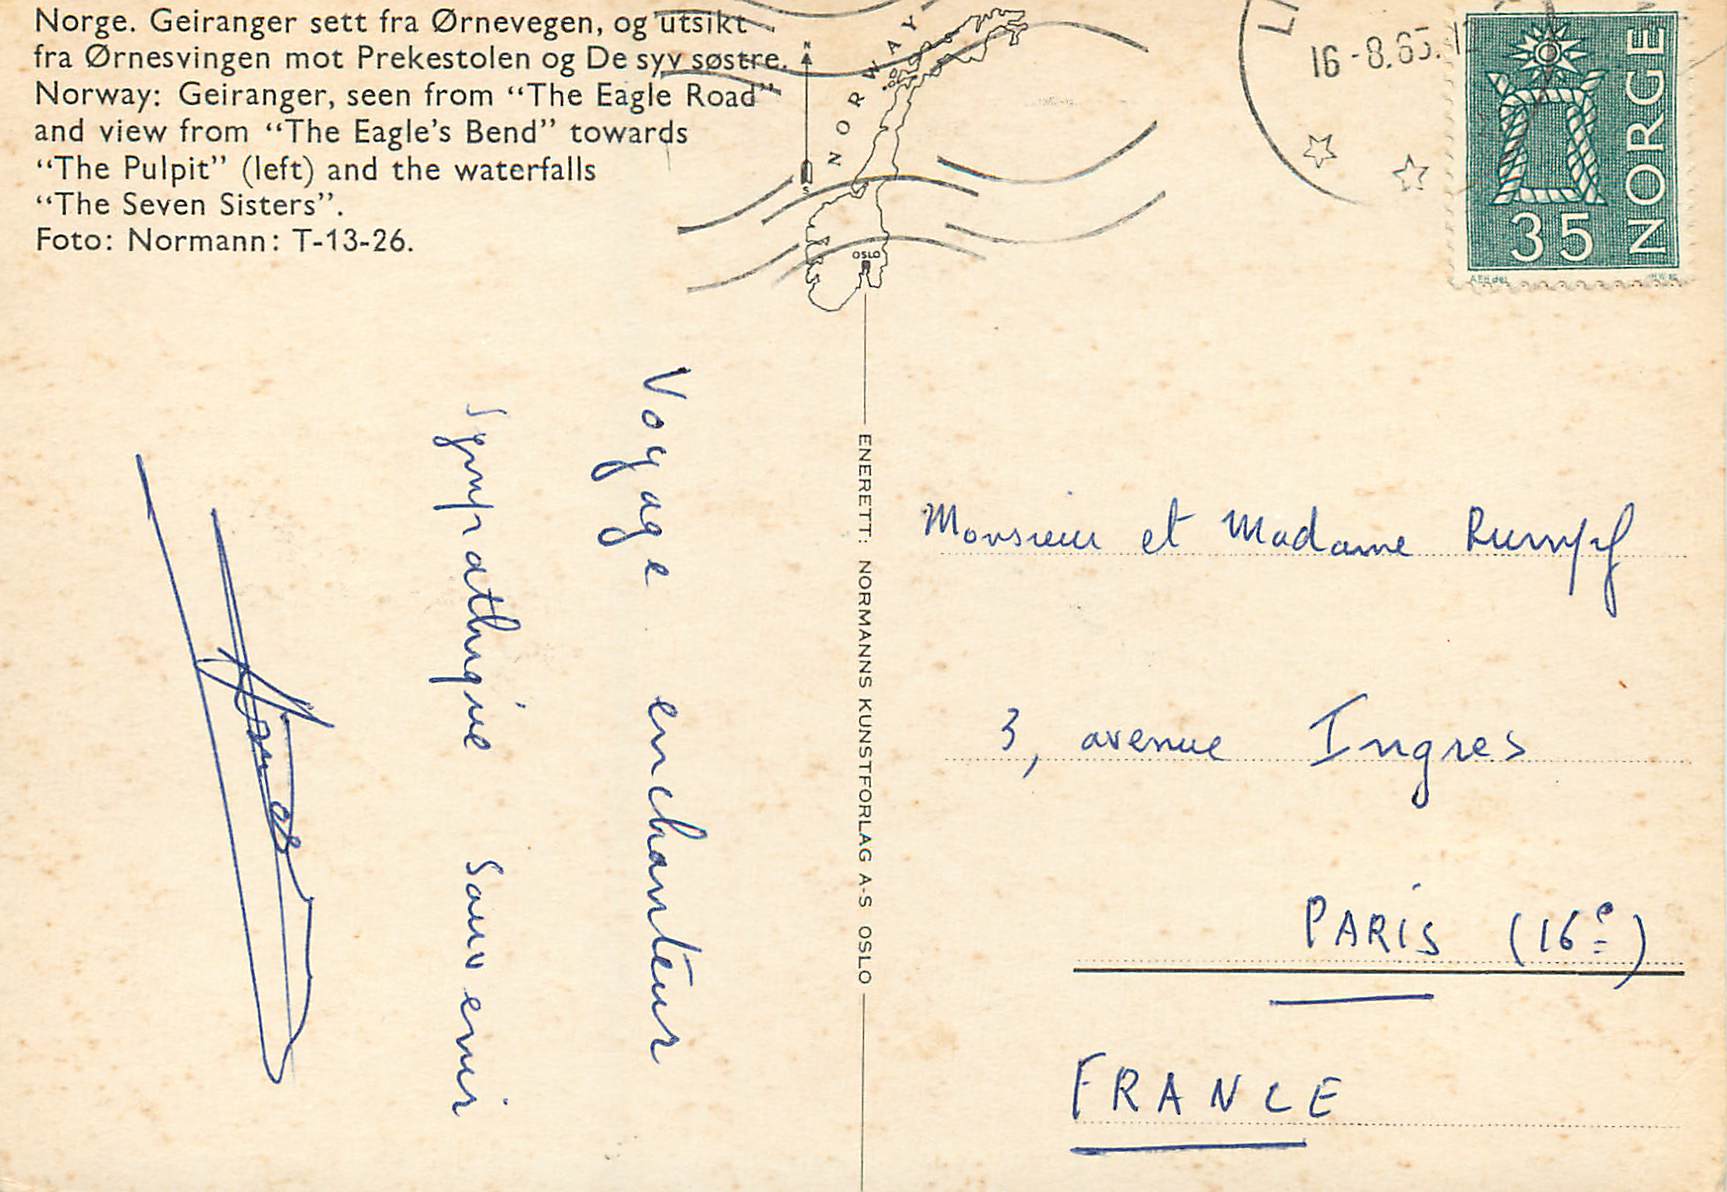 Norge. Geiranger sett fra Ørnevegen, og utsikt
fra Ørnesvingen mot Prekestolen og De syv søstre.
Norway: Geiranger, seen from “The Eagle Road”
and view from “The Eagle’s Bend” towards
“The Pulpit” (left) and the waterfalls
“The Seven Sisters”.
Foto: Normann: T-13-26.
N
NORWAY
S
OSLO
16-8.65.
NORGE
35
Voyage enchanteur
Sympathique souvenir
ENERETT: NORMANNS KUNSTFORLAG A-S OSLO
Monsieur et Madame Rumpf
3, avenue Ingres
PARIS (16e)
FRANCE